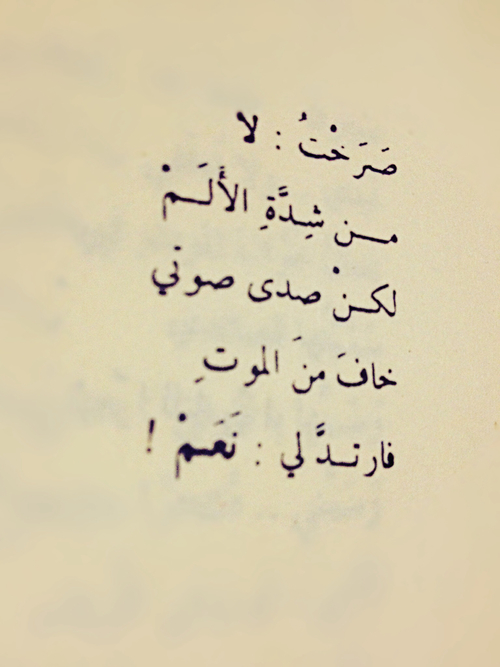 صَرَخْتُ : لا
مـن شِدَّةِ الأَلَـمْ
لكـنْ صدى صوتي
خافَ منَ الموتِ
فارتـدَّ لي : نَعَـمْ !